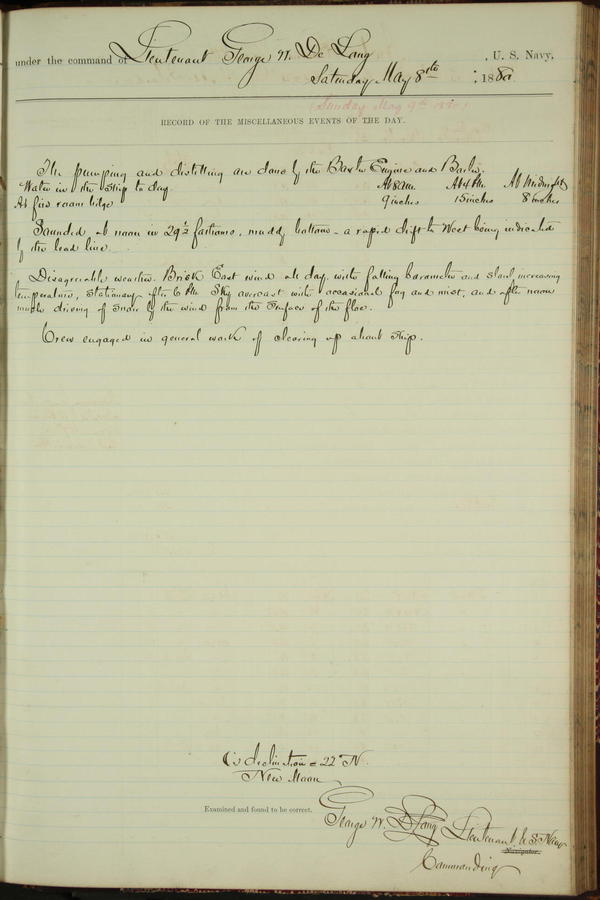 under the command of Lieutenant George W. De Long, U. S. Navy,
Saturday May 8th, 1880.
(Sunday May 9th 1880)
RECORD OF THE MISCELLANEOUS EVENTS OF THE DAY.
The pumping and distilling are done by the Baxter Engine and Boiler.
Water in the ship to day At 8 AM. At 4 PM At Midnight
At fire room bilge 9 inches 15 inches 8 inches
Sounded at noon in 29½ fathoms, muddy bottom - a rapid drift to West being indicated
by the lead line.
Disagreeable weather. Brisk East wind all day, with falling barometer and slowly increasing
temperature, stationary after 6 PM. Sky overcast with occasional fog and mist, and after noon
much driving of snow by the wind from the surface of the floe.
Crew engaged in general work of clearing up about ship.
('s declination = 22° N.
New Moon
Examined and found to be correct.
George W. De Long Lieutenant, U.S. Navy
Navigator.
Commanding